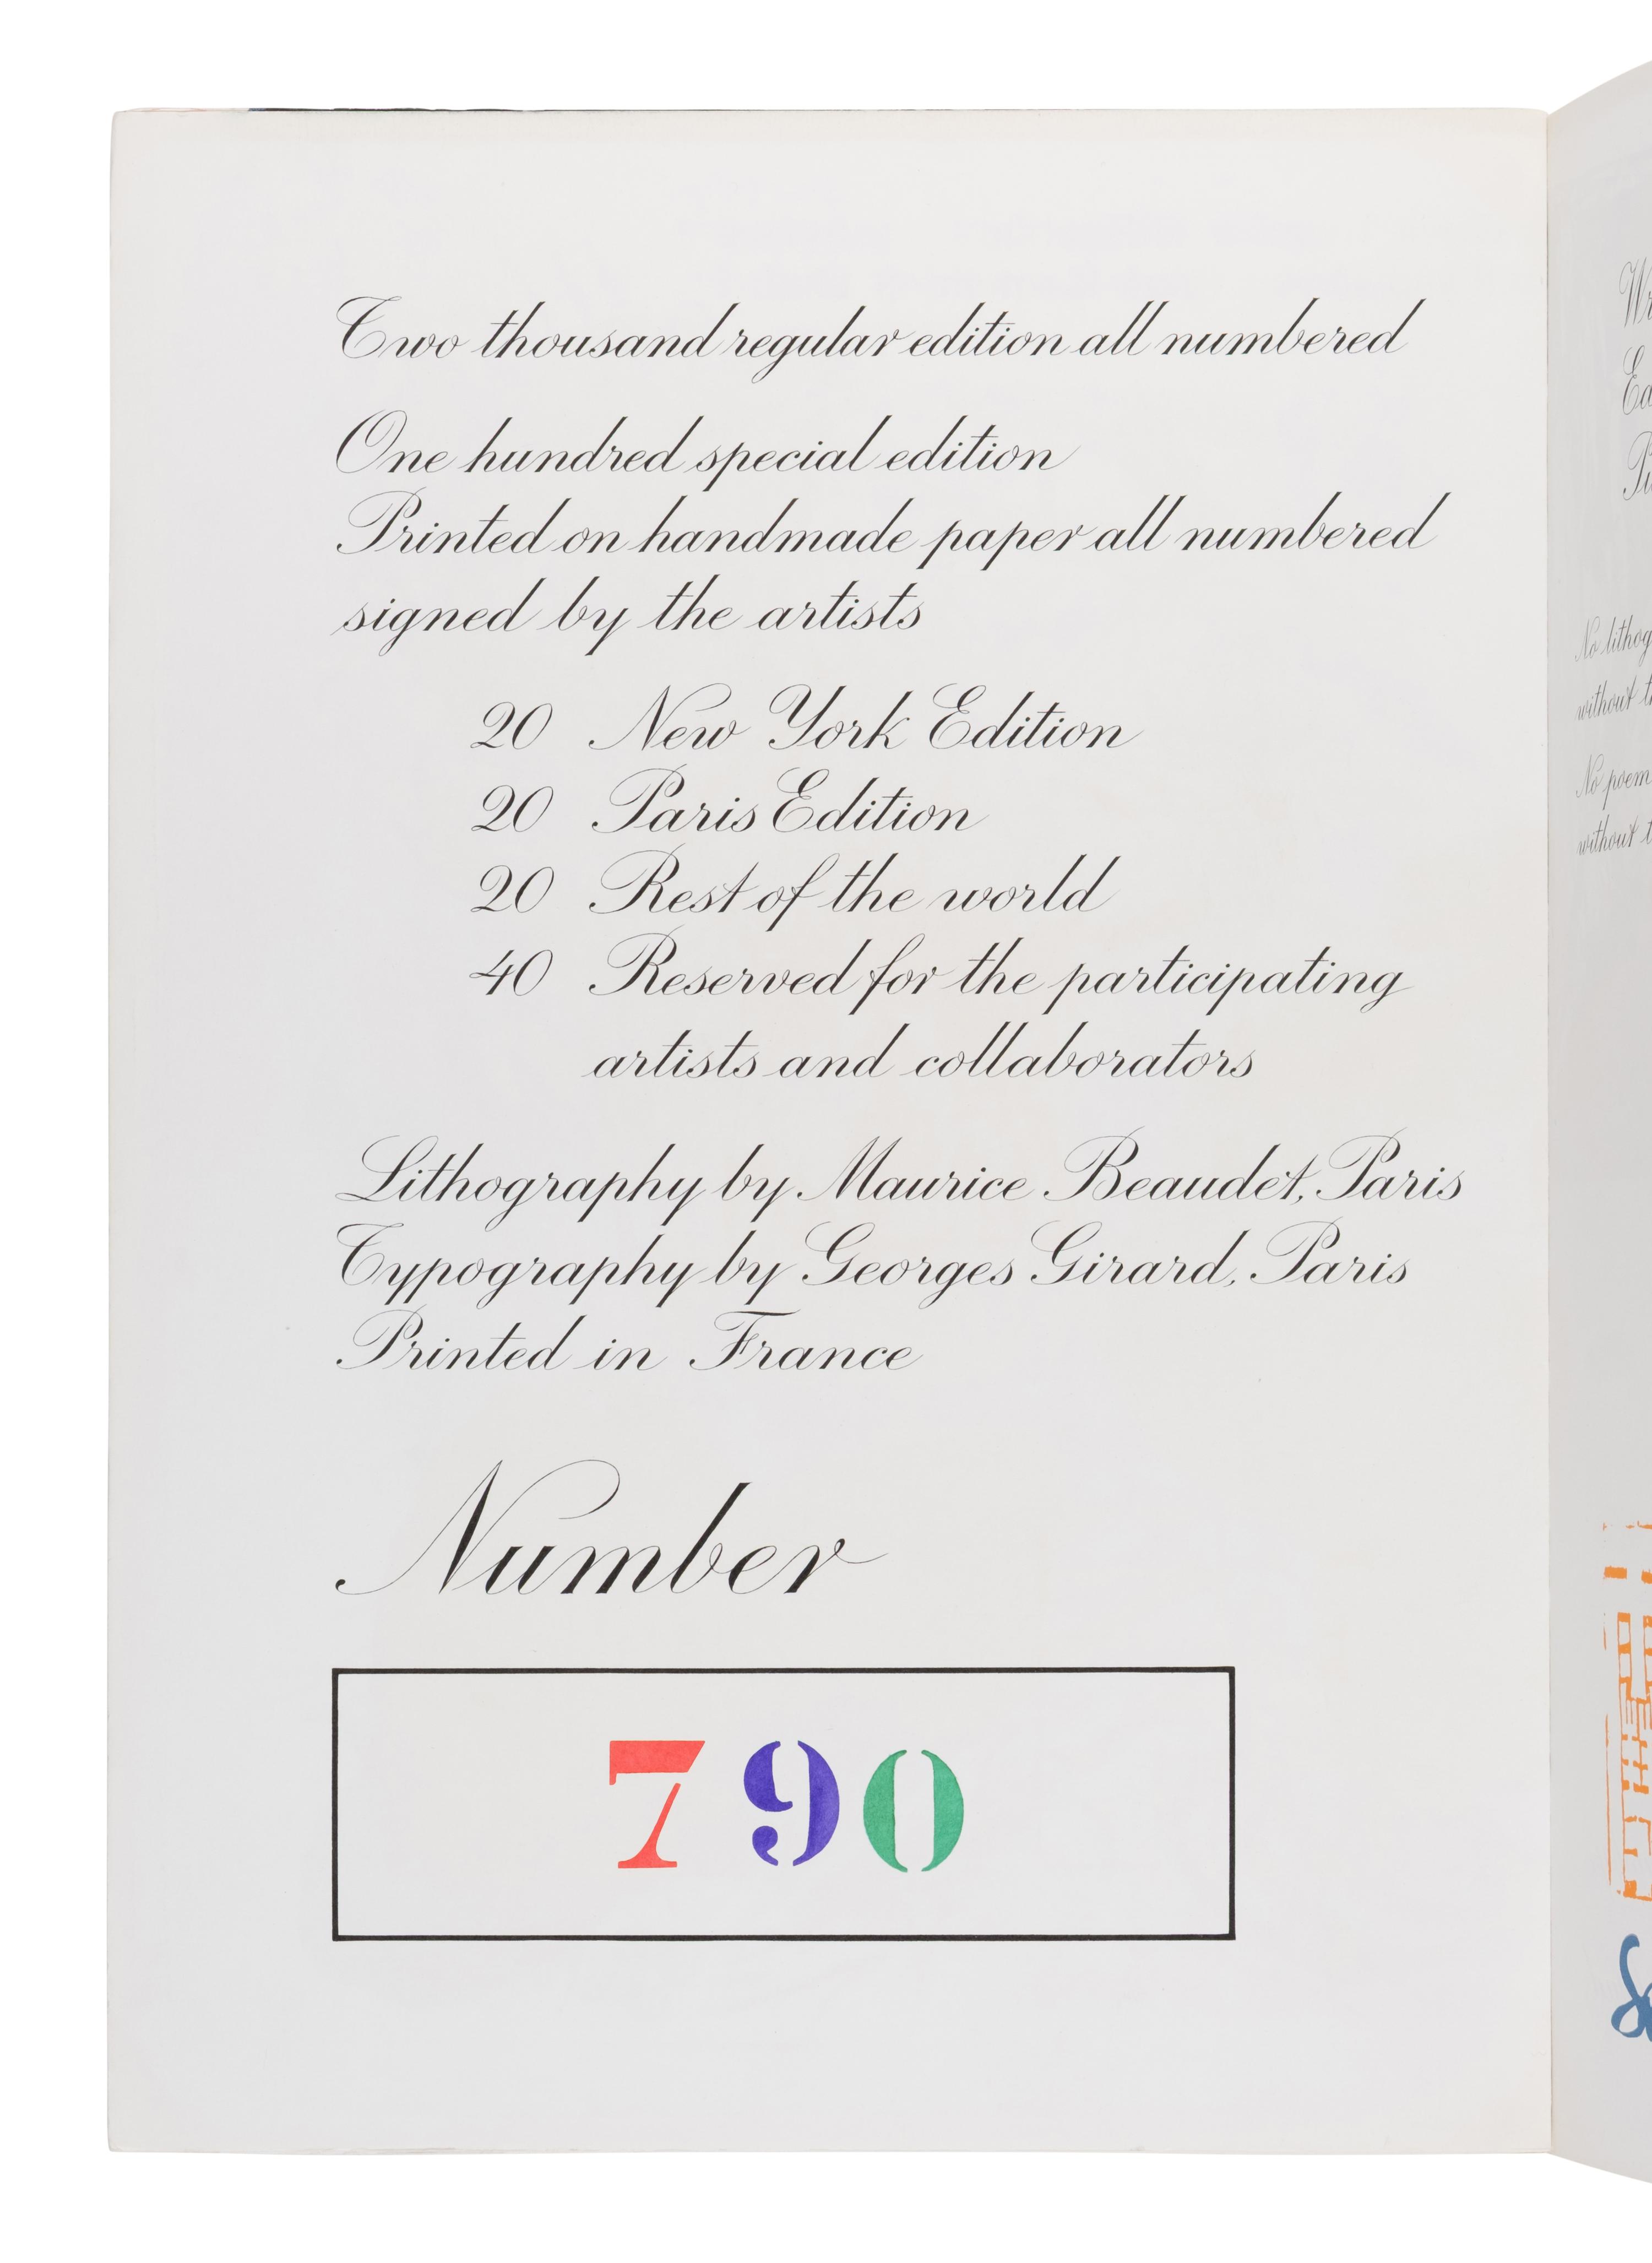 Two thousand regular edition all numbered
One hundred special edition
Printed on handmade paper all numbered
signed by the artists
20 New York Edition
20 Paris Edition
20 Rest of the world
40 Reserved for the participating
artists and collaborators
Lithography by Maurice Beaudet, Paris
Typography by Georges Girard, Paris
Printed in France
Number
790
No
without
No poem
without